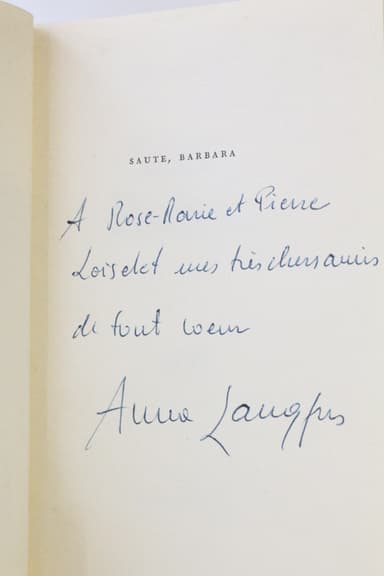 SAUTE, BARBARA
A Rose-Marie et Pierre
Loiselet mes très chers amis
de tout coeur
Anna Langfus